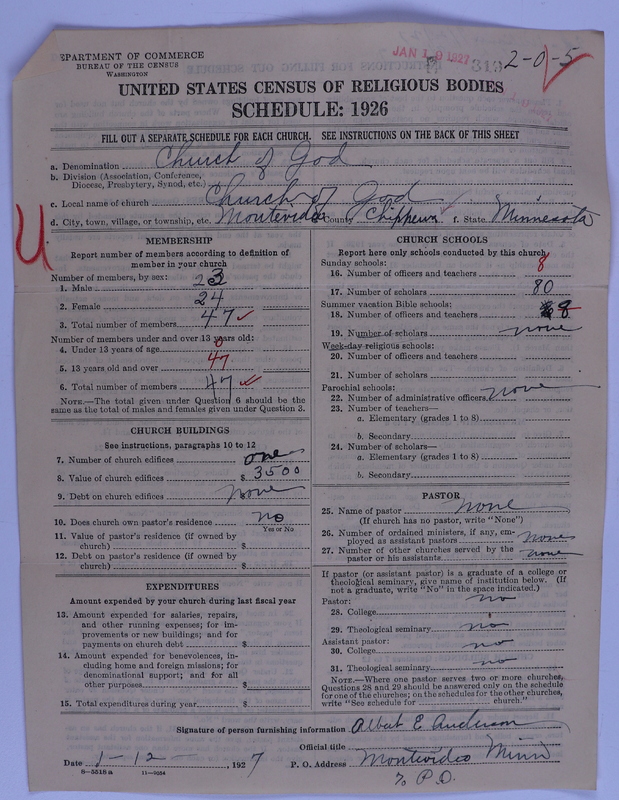 EPARTMENT OF COMMERCE
BUREAU OF THE CENSUS
WASHINGTON
JAN 10 1927
313
2-0-5
UNITED STATES CENSUS OF RELIGIOUS BODIES
SCHEDULE: 1926
FILL OUT A SEPARATE SCHEDULE FOR EACH CHURCH. SEE INSTRUCTIONS ON THE BACK OF THIS SHEET
a. Denomination Church of God
b. Division (Association, Conference, Diocese, Presbytery, Synod, etc.)
c. Local name of church Church of God
d. City, town, village, or township, etc. Montevideo County Chippewa f. State Minnesota
MEMBERSHIP
Report number of members according to definition of
member in your church
Number of members, by sex:
1. Male 23
2. Female 24
3. Total number of members 47
Number of members under and over 13 years old:
4. Under 13 years of age 0
5. 13 years old and over 47
6. Total number of members 47
NOTE.—The total given under Question 6 should be
same as the total of males and females given under Question 3.
CHURCH BUILDINGS
See instructions, paragraphs 10 to 12
7. Number of church edifices one
8. Value of church edifices $ 3500
9. Debt on church edifices None
10. Does church own pastor's residence No
Yes or No
11. Value of pastor's residence (if owned by
church) $
12. Debt on pastor's residence (if owned by
church) $
EXPENDITURES
Amount expended by your church during last fiscal year
13. Amount expended for salaries, repairs,
and other running expenses; for im-
provements or new buildings; and for
payments on church debt $
14. Amount expended for benevolences, in-
cluding home and foreign missions; for
denominational support; and for all
other purposes $
15. Total expenditures during year $
CHURCH SCHOOLS
Report here only schools conducted by this church
Sunday schools:
16. Number of officers and teachers 8
17. Number of scholars 80
Summer vacation Bible schools:
18. Number of officers and teachers 8
19. Number of scholars none
Week-day religious schools:
20. Number of officers and teachers
21. Number of scholars
Parochial schools:
22. Number of administrative officers none
23. Number of teachers—
a. Elementary (grades 1 to 8)
b. Secondary
24. Number of scholars—
a. Elementary (grades 1 to 8)
b. Secondary
PASTOR
25. Name of pastor none
(If church has no pastor, write "None")
26. Number of ordained ministers, if any, em-
ployed as assistant pastors none
27. Number of other churches served by the
pastor or his assistants none
If pastor (or assistant pastor) is a graduate of a college or
theological seminary, give name of institution below. (If
not a graduate, write "No" in the space indicated.)
Pastor:
28. College no
29. Theological seminary no
Assistant pastor:
30. College no
31. Theological seminary no
NOTE.—Where one pastor serves two or more churches,
Questions 28 and 29 should be answered only on the schedule
for one of the churches; on the schedules for the other churches,
write "See schedule for church."
Signature of person furnishing information Albert E Anderson
Official title
Date 1-12-, 1927 P. O. Address Montevideo Minn
8—5518a 11—9054
% P.O.